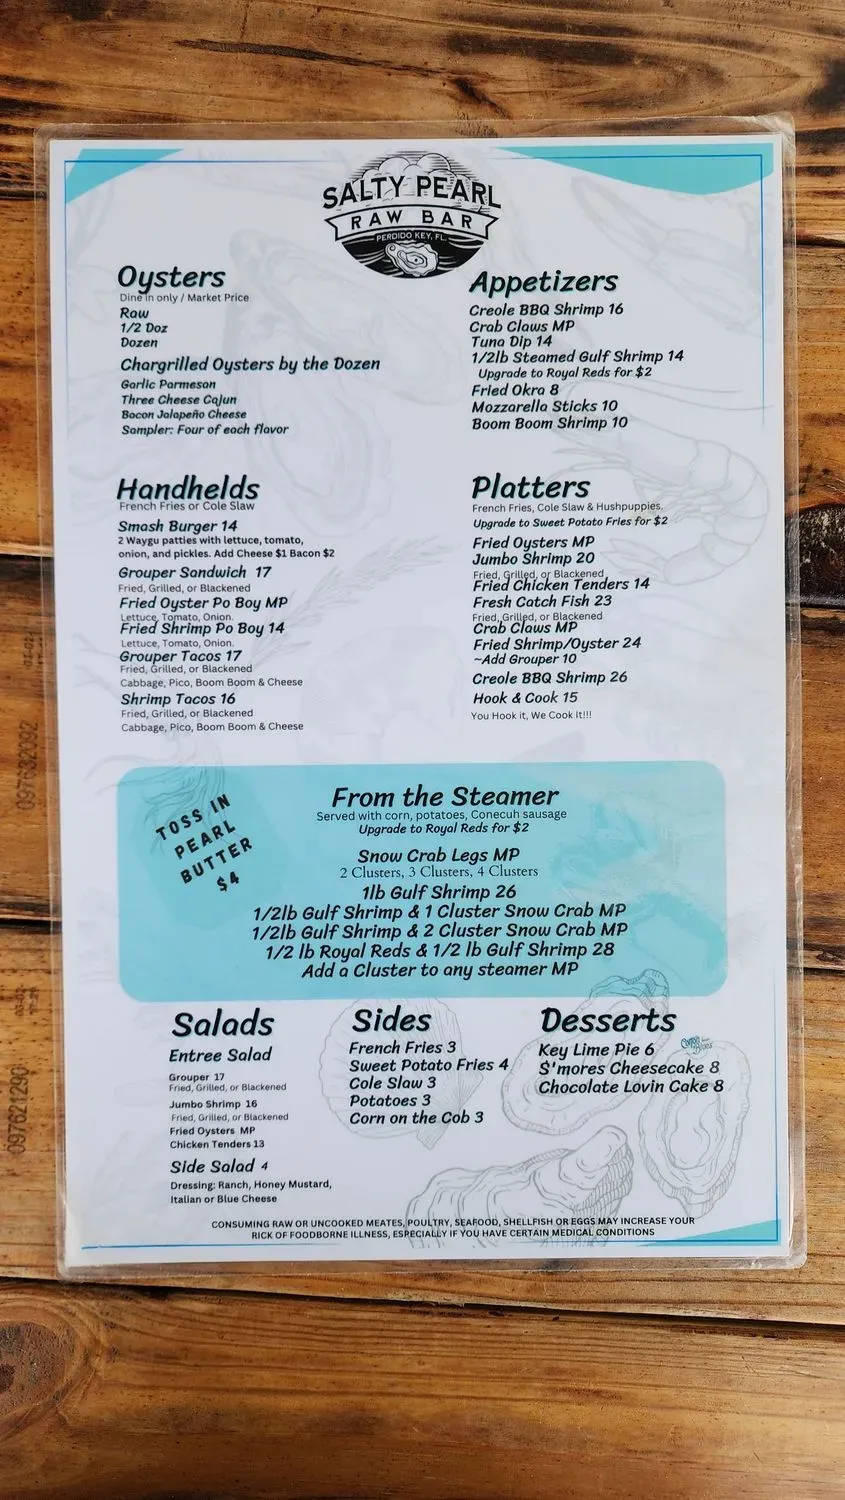 SALTY PEARL
RAW BAR
PERDIDO KEY, FL.
Oysters
Dine in only / Market Price
Raw
1/2 Doz
Dozen
Chargrilled Oysters by the Dozen
Garlic Parmesan
Three Cheese Cajun
Bacon Jalapeño Cheese
Sampler: Four of each flavor
Appetizers
Creole BBQ Shrimp 16
Crab Claws MP
Tuna Dip 14
1/2lb Steamed Gulf Shrimp 14
Upgrade to Royal Reds for $2
Fried Okra 8
Mozzarella Sticks 10
Boom Boom Shrimp 10
Handhelds
French Fries or Cole Slaw
Smash Burger 14
2 Waygu patties with lettuce, tomato,
onion, and pickles. Add Cheese $1 Bacon $2
Grouper Sandwich 17
Fried, Grilled, or Blackened
Fried Oyster Po Boy MP
Lettuce, Tomato, Onion.
Fried Shrimp Po Boy 14
Lettuce, Tomato, Onion.
Grouper Tacos 17
Fried, Grilled, or Blackened
Cabbage, Pico, Boom Boom & Cheese
Shrimp Tacos 16
Fried, Grilled, or Blackened
Cabbage, Pico, Boom Boom & Cheese
Platters
French Fries, Cole Slaw & Hushpuppies.
Upgrade to Sweet Potato Fries for $2
Fried Oysters MP
Jumbo Shrimp 20
Fried, Grilled, or Blackened
Fried Chicken Tenders 14
Fresh Catch Fish 23
Fried, Grilled, or Blackened
Crab Claws MP
Fried Shrimp/Oyster 24
~Add Grouper 10
Creole BBQ Shrimp 26
Hook & Cook 15
You Hook it, We Cook It!!!
TOSS IN
PEARL
BUTTER
$4
From the Steamer
Served with corn, potatoes, Conecuh sausage
Upgrade to Royal Reds for $2
Snow Crab Legs MP
2 Clusters, 3 Clusters, 4 Clusters
1lb Gulf Shrimp 26
1/2lb Gulf Shrimp & 1 Cluster Snow Crab MP
1/2lb Gulf Shrimp & 2 Cluster Snow Crab MP
1/2 lb Royal Reds & 1/2 lb Gulf Shrimp 28
Add a Cluster to any steamer MP
Salads
Entree Salad
Grouper 17
Fried, Grilled, or Blackened
Jumbo Shrimp 16
Fried, Grilled, or Blackened
Fried Oysters MP
Chicken Tenders 13
Side Salad 4
Dressing: Ranch, Honey Mustard,
Italian or Blue Cheese
Sides
French Fries 3
Sweet Potato Fries 4
Cole Slaw 3
Potatoes 3
Corn on the Cob 3
Desserts
Key Lime Pie 6
S'mores Cheesecake 8
Chocolate Lovin Cake 8
CONSUMING RAW OR UNCOOKED MEATES, POULTRY, SEAFOOD, SHELLFISH OR EGGS MAY INCREASE YOUR
RICK OF FOODBORNE ILLNESS, ESPECIALLY IF YOU HAVE CERTAIN MEDICAL CONDITIONS
097632092
097621290